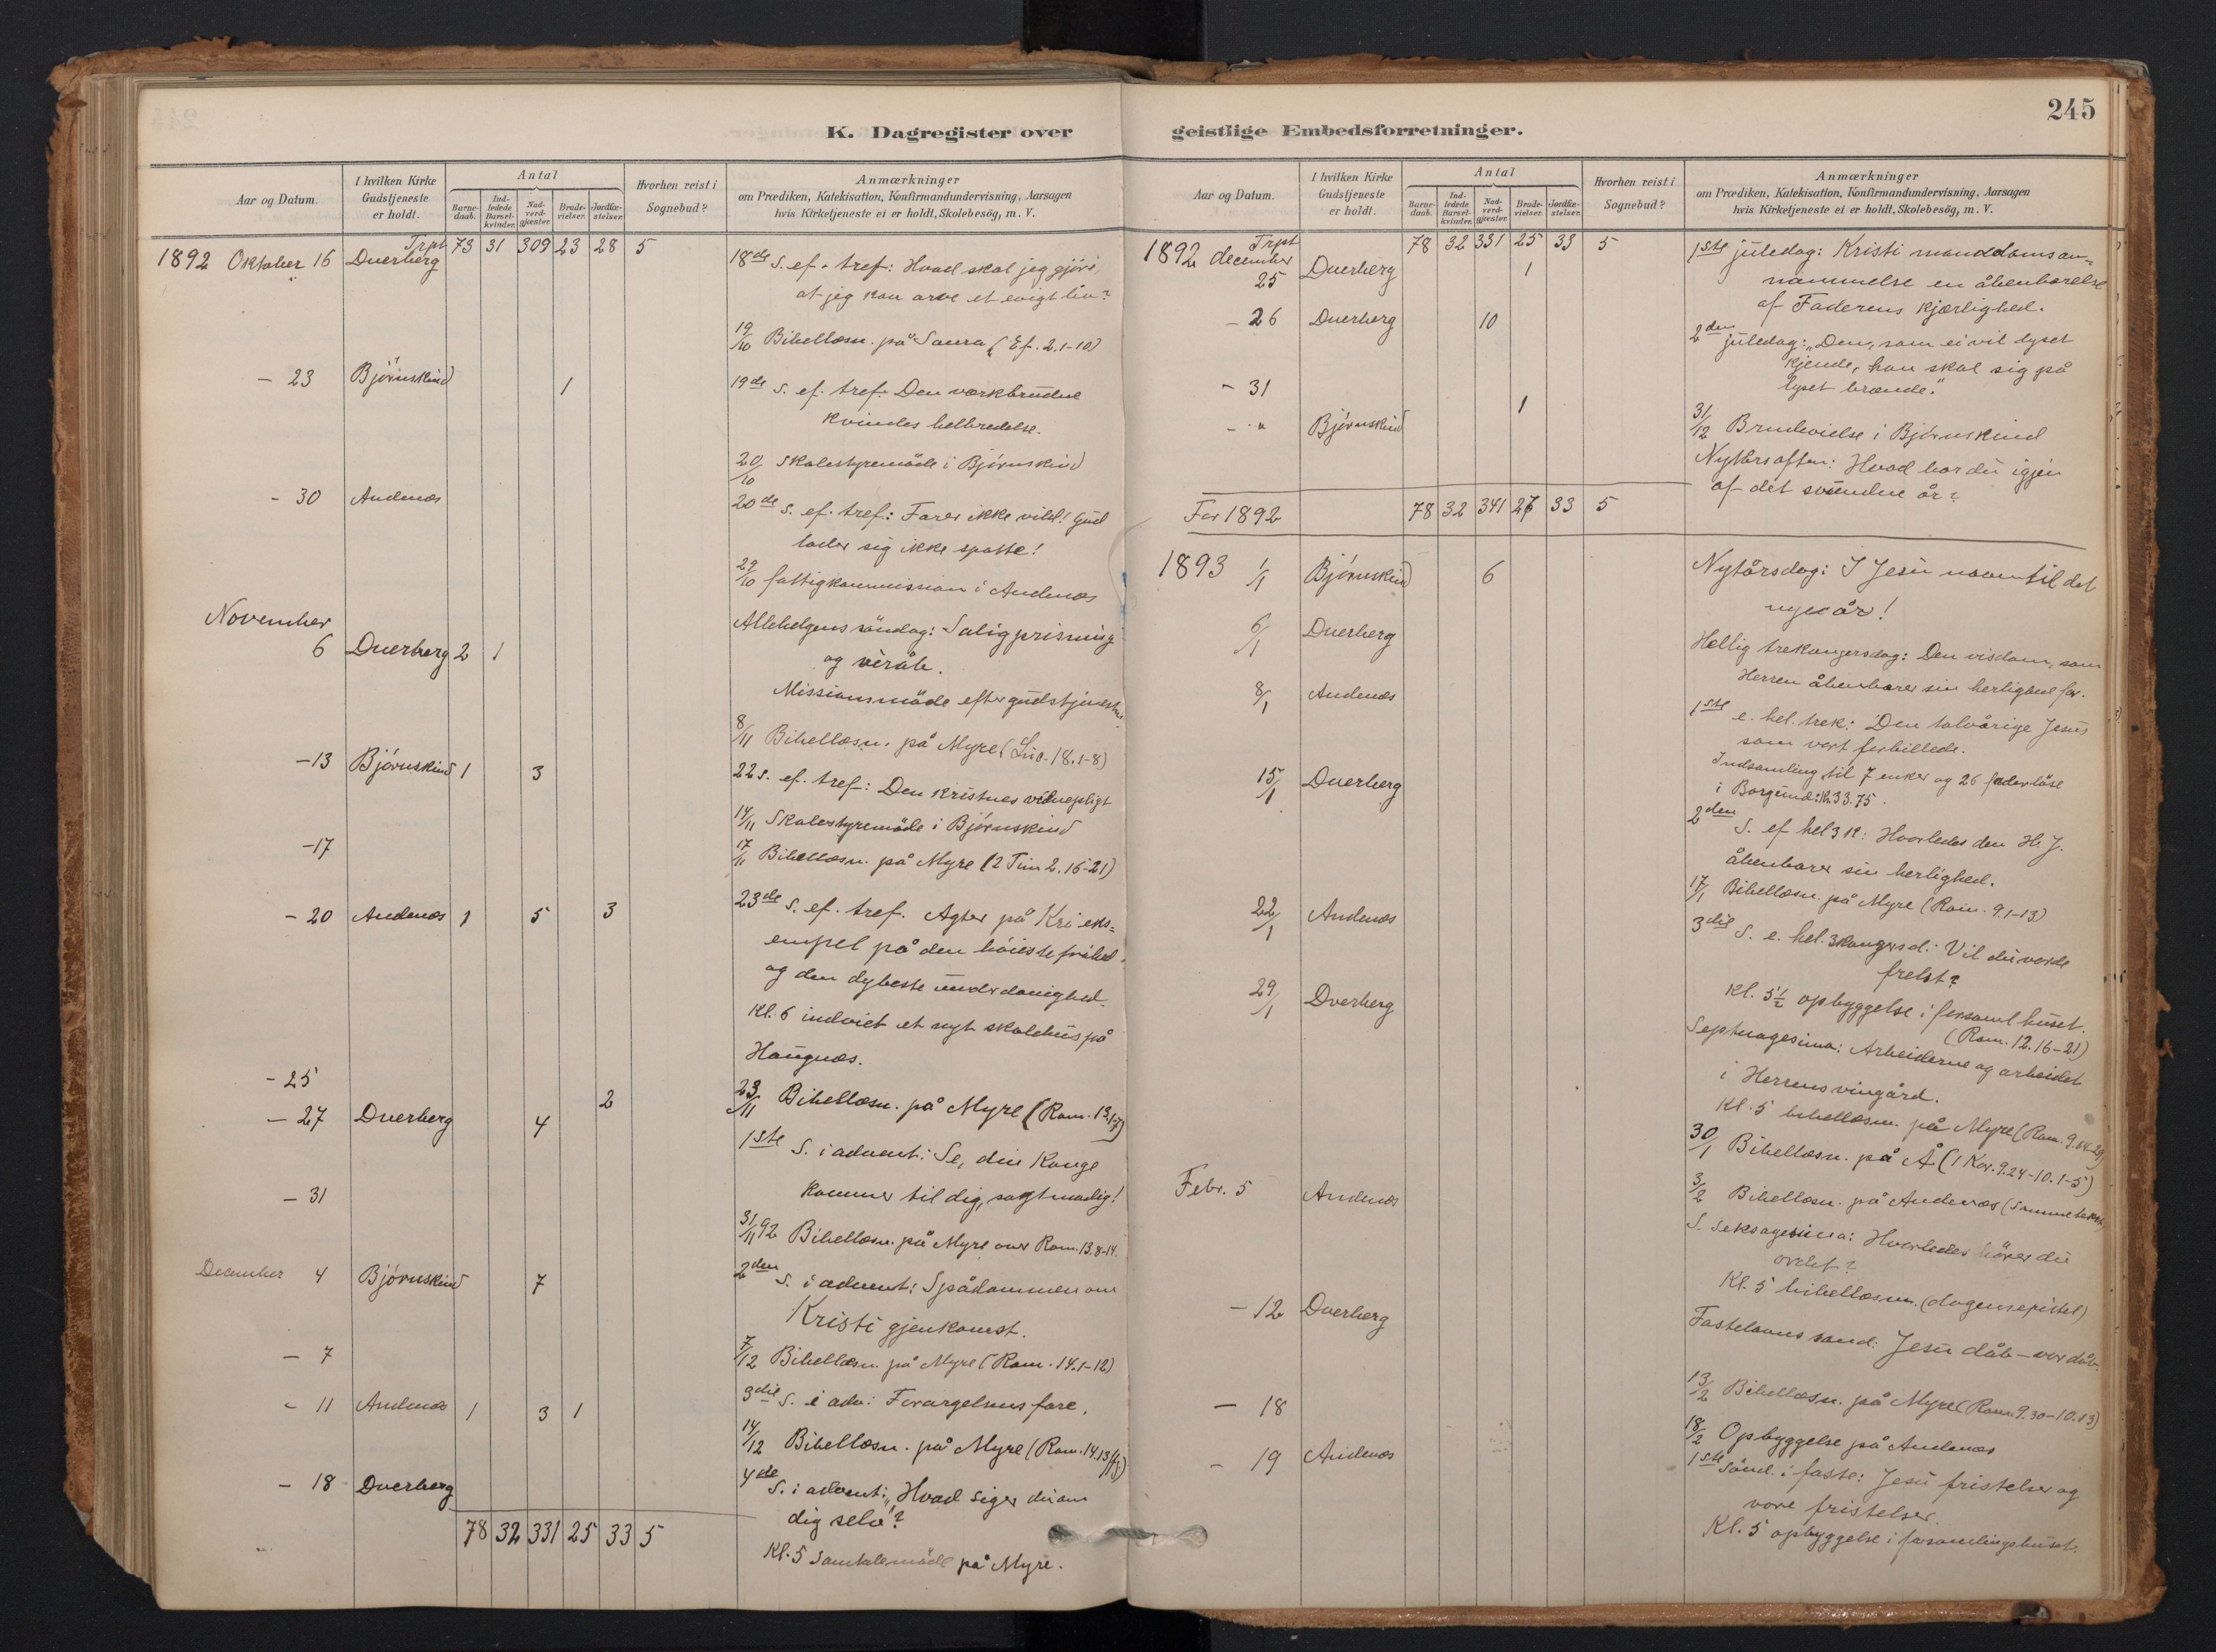 245
K. Dagregister over geistlige Embedsforretninger.
Aar og Datum.
I hvilken Kirke Gudstjeneste er holdt.
Antal
Barnedaab.
Indledede Barselkvinder.
Nadverdgjester.
Brudevielser.
Jordfæstelser.
Hvorhen reist i Sognebud?
Anmærkninger
om Prædiken, Katekisation, Konfirmandundervisning, Aarsagen
hvis Kirketjeneste ei er holdt, Skolebesög, m. V.
Trpt 73 31 309 23 28 5
1892 Oktober 16 Dverberg 18de S. ef. tref: Hvad skal jeg gjöre,
at jeg kan arve et evigt liv?
19/10 Bibellæsn. på Saura (Ef. 2.1-10)
- 23 Björnskind 1 19de S. ef. tref: Den værkbrudne
kvindes helbredelse.
20/10 Skolestyremöde i Björnskind
- 30 Andenæs 20de S. ef. tref: Farer ikke vild! Gud
lader sig ikke spotte!
29/10 fattigkommission i Andenæs
November
6 Dverberg 2 1 Allehelgens söndag: Saligprisning
og veråb.
Missionsmöde efter gudstjenesten
8/11 Bibellæsn. på Myre (Luc. 18.1-8)
-13 Björnskind 1 3 22 S. ef. tref: Den kristnes vidnepligt
14/11 Skolestyremöde i Björnskind
-17 17/11 Bibellæsn. på Myre (2 Tim 2.16-21)
- 20 Andenæs 1 5 3 23de S. ef. tref. Agter på Kri eks=
empel på den höieste frihed
og den dybeste underdanighed.
Kl. 6 indviet et nyt skolehus på
Haugnæs.
- 25 23/11 Bibellæsn. på Myre (Rom. 13.1-7)
- 27 Dverberg 4 2 1ste S. i advent: Se, din Konge
kommer til dig, sagtmodig!
- 31 31/11 92 Bibellæsn. på Myre over Rom. 13.8-14.
December 4 Björnskind 7 2den S. i advent: Spådommen om
Kristi gjenkomst.
- 7 7/12 Bibellæsn. på Myre (Rom. 14.1-12)
- 11 Andenæs 1 3 1 3die S. i adv: Forargelsens fare.
14/12 Bibellæsn. på Myre (Rom. 14.13 ffg)
- 18 Dverberg 4de S. i advent: "Hvad siger du om
dig selv"?
78 32 331 25 33 5
Kl. 5 samtalemöde på Myre.
Aar og Datum.
I hvilken Kirke Gudstjeneste er holdt.
Antal
Barnedaab.
Indledede Barselkvinder.
Nadverdgjester.
Brudevielser.
Jordfæstelser.
Hvorhen reist i Sognebud?
Anmærkninger
om Prædiken, Katekisation, Konfirmandundervisning, Aarsagen
hvis Kirketjeneste ei er holdt, Skolebesög, m. V.
Trpt 78 32 331 25 33 5
1892 december 25 Dverberg 1 1ste juledag: Kristi manddomsan=
nammelse en åbenbarelse
af Faderens kjærlighed.
- 26 Dverberg 10 2den juledag: "Den, som ei vil lyset
kjende, han skal sig på
lyset brænde."
- 31
- " Björnskind 1 31/12 Brudevielse i Björnskind
Nytårsaften: Hvad har du igjen
af det svundne år?
For 1892 78 32 341 27 33 5
1893 1/1 Björnskind 6 Nytårsdag: I Jesu navn til det
nye år!
6/1 Dverberg Hellig trekongersdag: Den visdom, som
Herren åbenbarer sin herlighed for.
8/1 Andenæs 1ste e. hel. trek: Den tolvårige Jesus
som vort forbillede.
Indsamling til 7 enker og 26 faderlöse
i Borgund: Kr. 33.75.
15/1 Dverberg 2den S. ef hel 3 K: Hvorledes den H. J.
åbenbarer sin herlighed.
17/1 Bibellæsn. på Myre (Rom. 9.1-13)
22/1 Andenæs 3die S. e. hel. 3kongersd: Vil du vorde
frelst?
Kl. 5½ opbyggelse i forsaml huset.
(Rom. 12.16-21)
29/1 Dverberg Septuagesima: Arbeiderne og arbeidet
i Herrens vingård.
Kl. 5 bibellæsn. på Myre (Rom. 9.14-29)
30/1 Bibellæsn. på Å (1 Kor. 9.24-10.1-5)
3/2 Bibellæsn. på Andenæs (Samme tekst)
Febr. 5 Andenæs S. Seksagesima: Hvorledes hörer du
ordet?
Kl. 5 bibellæsn. (dagens epistel)
- 12 Dverberg Fastelavns sönd: Jesu dåb - vor dåb.
13/2 Bibellæsn. på Myre (Rom. 9.30-10.13)
- 18 18/2 Opbyggelse på Andenæs
- 19 Andenæs 1ste Sönd. i faste: Jesu fristelser og
vore fristelser.
Kl. 5 opbyggelse i forsamlingshuset.